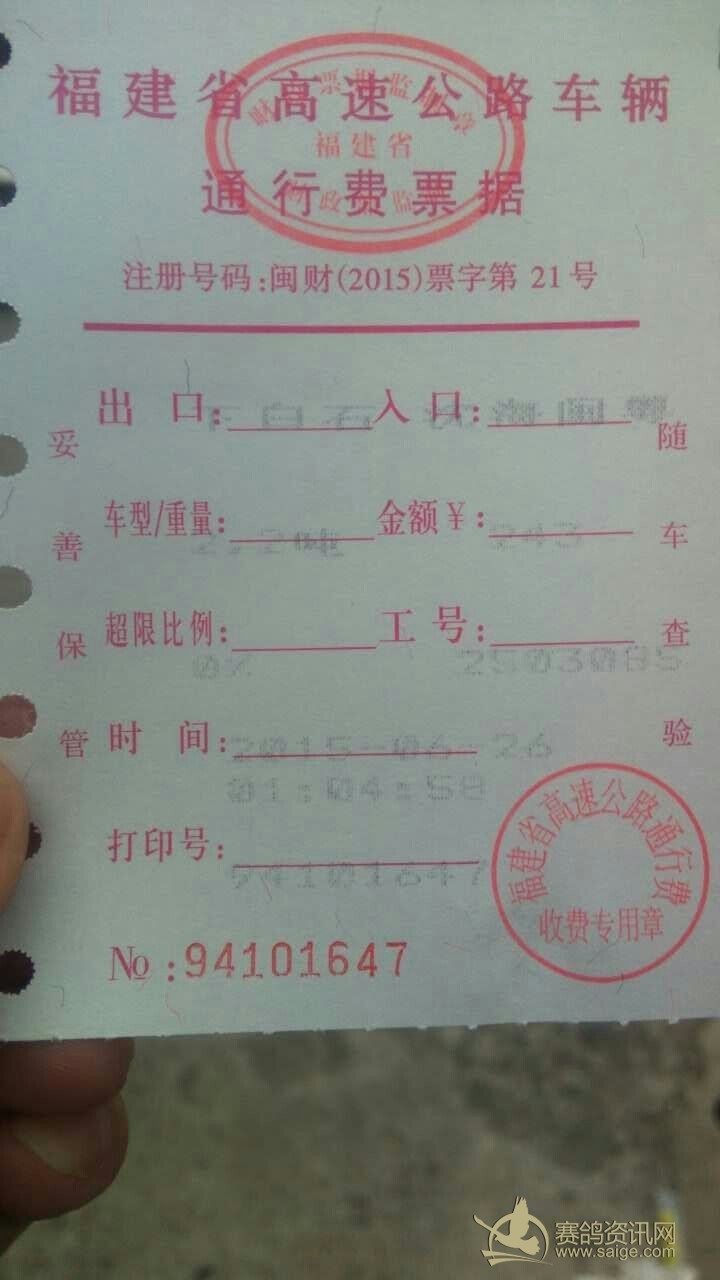 福建省高速公路车辆
福建省
通行费票据
注册号码:闽财(2015)票字第 21号
妥善保管
随车查验
出 口: 下白石 入口: 沈海闽粤
车型/重量: 金额¥: 243
超限比例: 0% 工 号: 2503085
时 间: 2015-06-26
01:04:58
打印号: 94101647
№:94101647
福建省高速公路通行费
收费专用章
赛鸽资讯网
www.saige.com